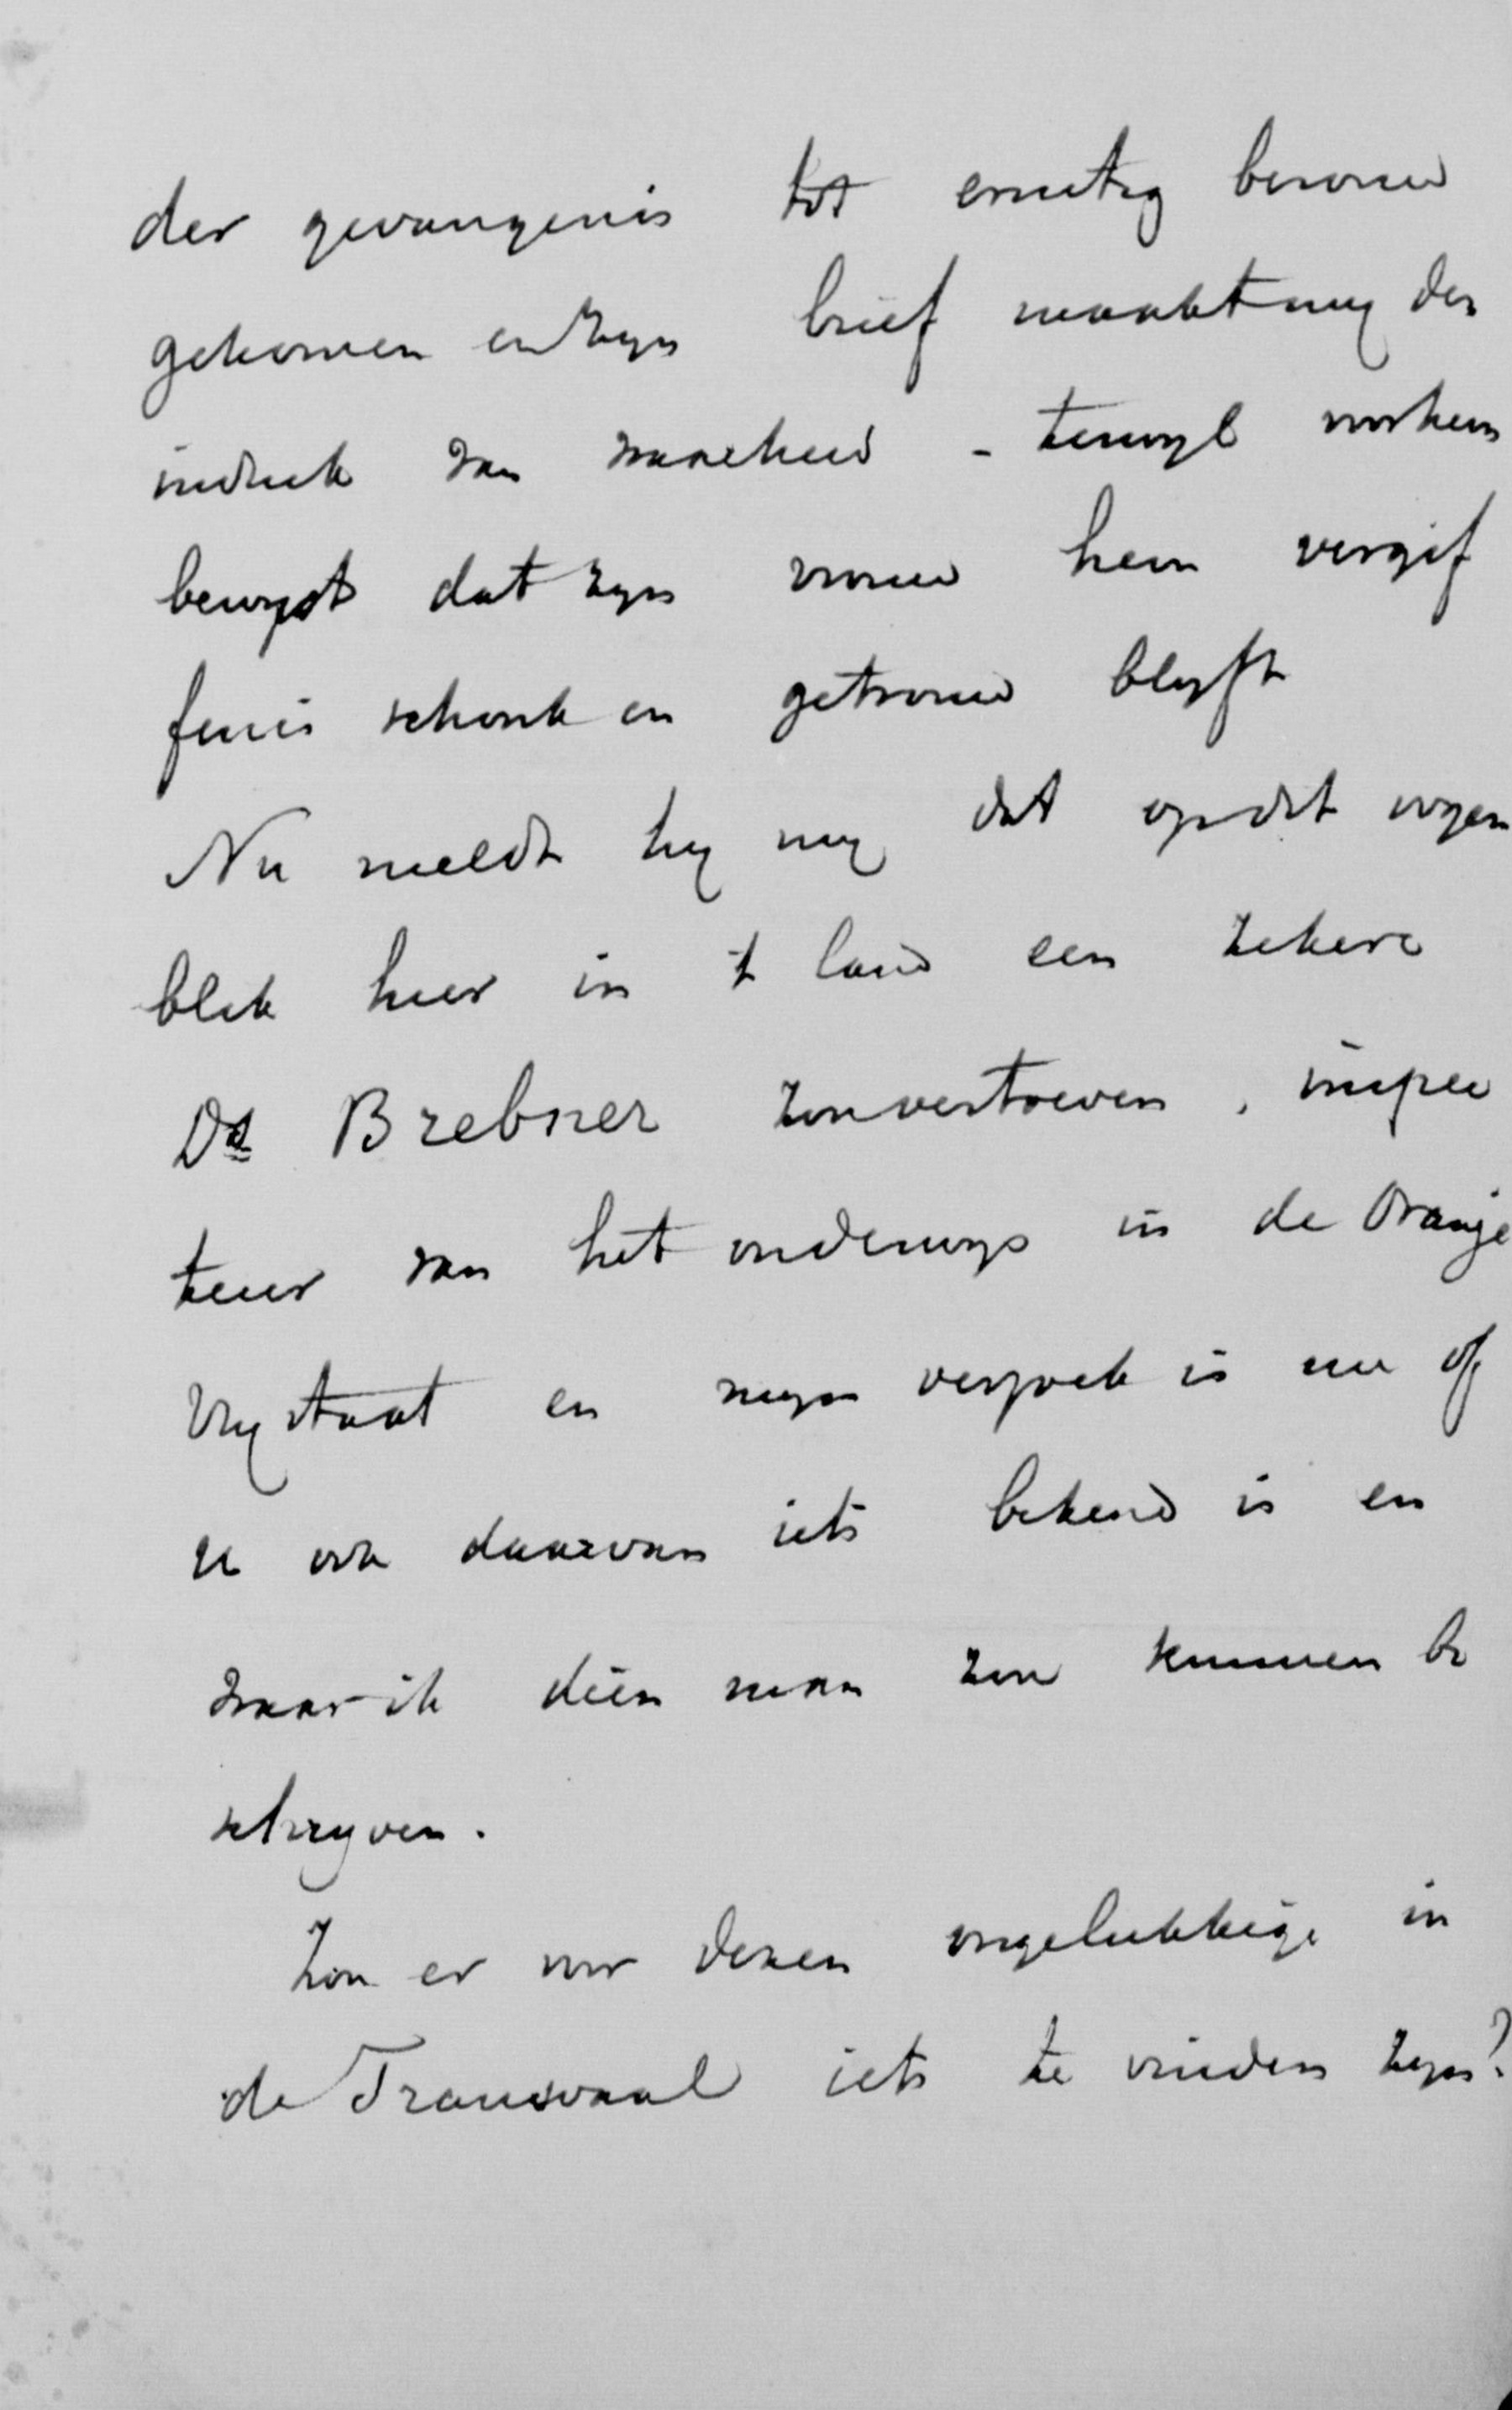 der gevangenis tot ernstig berouw
gekomen en zijn brief maakt mij den
indruk van waarheid - terwyl voor hem
bewyst dat zyn vrouw hem vergif
fenis schonk en getrouw blyft
Nu meldt hy my dat op dit oogen
blik hier in 't land een zekere
Ds Brebner zou vertoeven, inspec
teur van het onderwys in de Oranje
Vrystaat en myn verzoek is nu of
U ook daarvan iets bekend is en
waar ik dien man zou kunnen be
schryven.
Zou er voor dezen ongelukkige in
de Transvaal iets te vinden zyn?